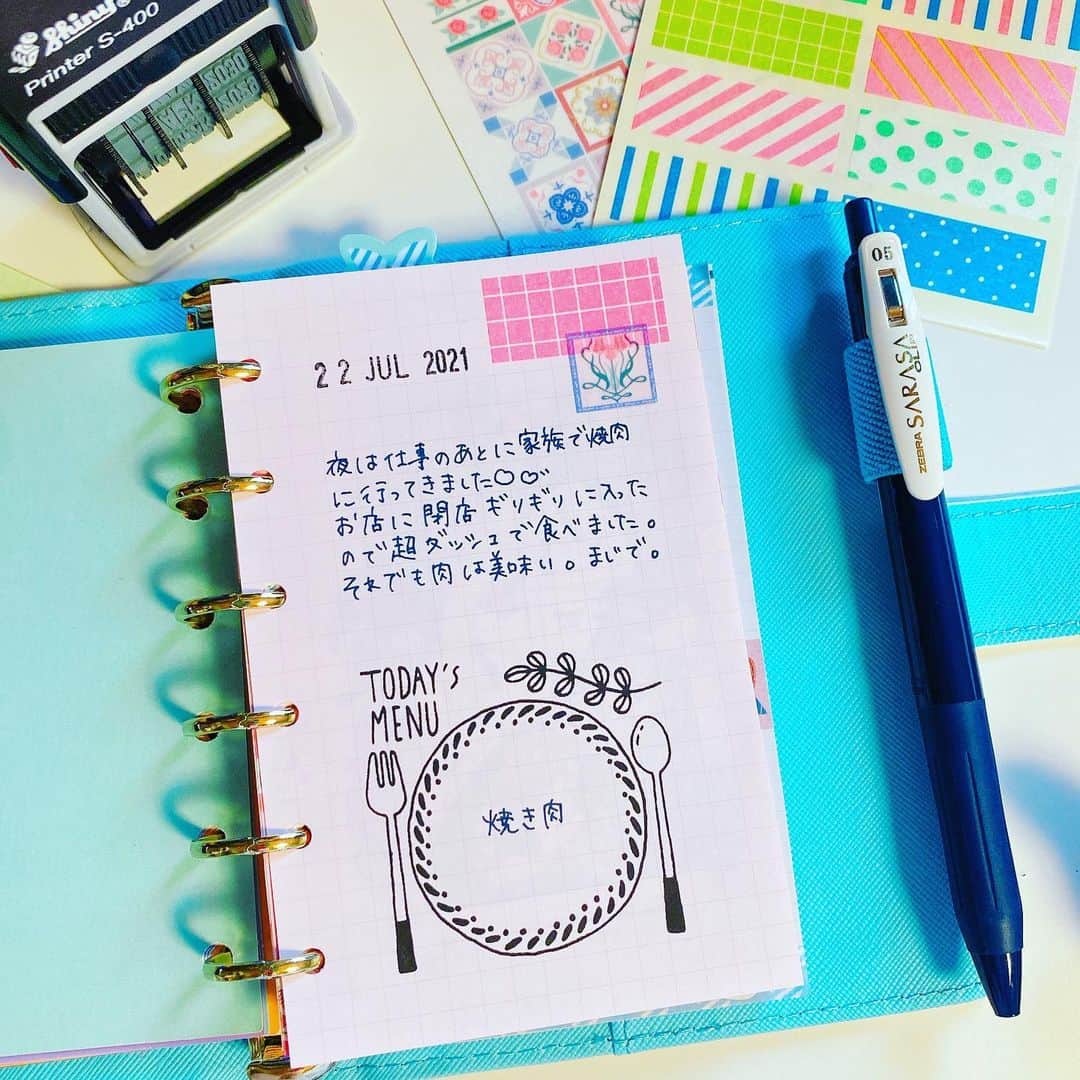 Shiny
Printer S-400
22 JUL 2021
夜は仕事のあとに家族で焼肉
に行ってきました♡♡
お店に閉店ギリギリに入った
ので超ダッシュで食べました。
それでも肉は美味い。まじで。
TODAY's
MENU
焼き肉
05
ZEBRA SARASA CLIP